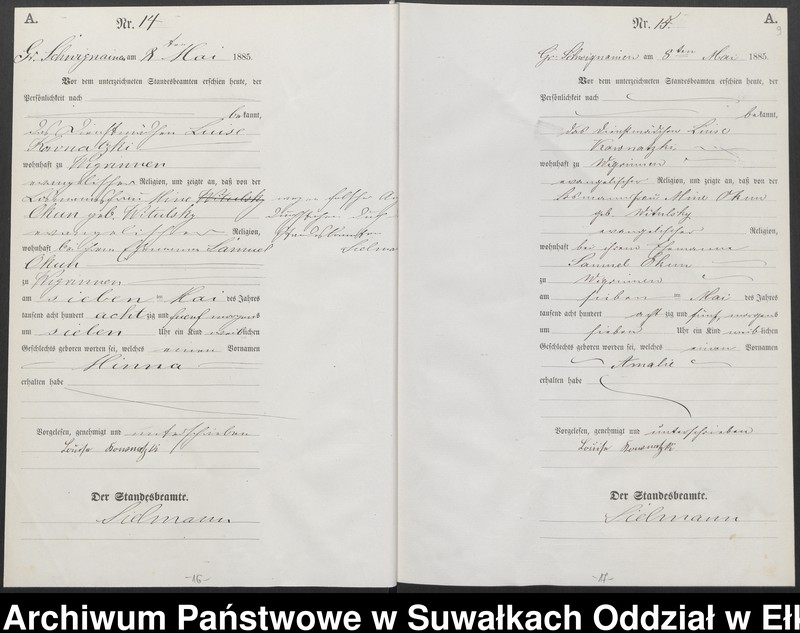 A.
Nr. 14
Gr. Schwignainen, am 8 ten Mai 1885.
Vor dem unterzeichneten Standesbeamten erschien heute, der
Persönlichkeit nach
bekannt,
das Dienstmädchen Luise
wohnhaft zu Wigrinnen
evangelischer Religion, und zeigte an, daß von der
Losmannsfrau Mine
Okun geb. Witulsky
evangelischer Religion,
wohnhaft bei ihrem Ehemanne Samuel
Okun
zu Wigrinnen
am sieben = Mai des Jahres
tausend acht hundert achtzig und fuenf morgens
um sieben Uhr ein Kind weiblichen
Geschlechts geboren worden sei, welches einen Vornamen
Minna
erhalten habe
Vorgelesen, genehmigt und unterschrieben
Louise Kownatzki
Der Standesbeamte.
Sielmann
Standesbeamten
Sielmann
-16-
Nr. 15.
A.
Gr. Schwignainen am 8ten Mai 1885.
Vor dem unterzeichneten Standesbeamten erschien heute, der
Persönlichkeit nach
bekannt,
das Dienstmädchen Luise
Kownatzki
wohnhaft zu Wigrinnen
evangelischer Religion, und zeigte an, daß von der
Losmannsfrau Mine Okun
geb. Witulsky
evangelischer Religion,
wohnhaft bei ihrem Ehemanne
Samuel Okun
zu Wigrinnen
am sieben = Mai des Jahres
tausend acht hundert achtzig und fünf morgens
um sieben Uhr ein Kind weiblichen
Geschlechts geboren worden sei, welches einen Vornamen
Amalie
erhalten habe
Vorgelesen, genehmigt und unterschrieben
Louise Kownatzki
Der Standesbeamte.
Sielmann
-17-
Archiwum Państwowe w Suwałkach Oddział w Ełk